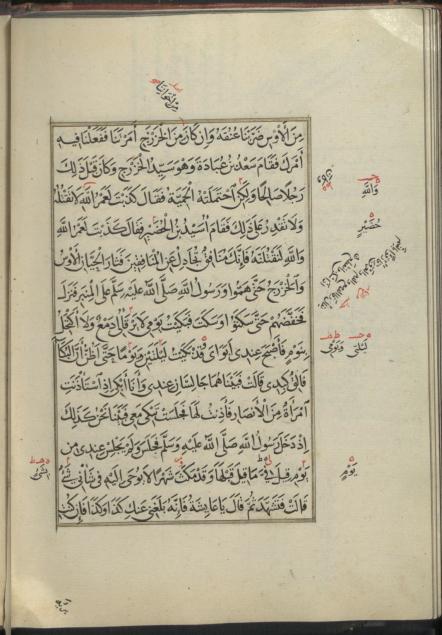 مِنَ الْأَوْسِ ضَرَبْنَا عُنُقَهُ وَإِنْ كَانَ مِنَ الْخَزْرَجِ أَمَرْتَنَا فَفَعَلْنَا فِيهِ
أَمْرَكَ فَقَامَ سَعْدُ بْنُ عُبَادَةَ وَهُوَ سَيِّدُ الْخَزْرَجِ وَكَانَ قَبْلَ ذَلِكَ
رَجُلًا صَالِحًا وَلَكِنِ احْتَمَلَتْهُ الْحَمِيَّةُ فَقَالَ كَذَبْتَ لَعَمْرُ اللَّهِ لَا تَقْتُلُهُ
وَلَا تَقْدِرُ عَلَى ذَلِكَ فَقَامَ أُسَيْدُ بْنُ الْحُضَيْرِ فَقَالَ كَذَبْتَ لَعَمْرُ اللَّهِ
وَاللَّهِ لَنَقْتُلَنَّهُ فَإِنَّكَ مُنَافِقٌ تُجَادِلُ عَنِ الْمُنَافِقِينَ فَثَارَ الْحَيَّانِ الْأَوْسُ
وَالْخَزْرَجُ حَتَّى هَمُّوا وَرَسُولُ اللَّهِ صَلَّى اللَّهُ عَلَيْهِ وَسَلَّمَ عَلَى الْمِنْبَرِ فَنَزَلَ
فَخَفَّضَهُمْ حَتَّى سَكَتُوا وَسَكَتَ فَبَكَيْتُ يَوْمِي لَا يَرْقَأُ لِي دَمْعٌ وَلَا أَكْتَحِلُ
بِنَوْمٍ فَأَصْبَحَ عِنْدِي أَبَوَايَ قَدْ بَكَيْتُ لَيْلَتَيْنِ وَيَوْمًا حَتَّى أَظُنُّ أَنَّ الْبُكَاءَ
فَالِقٌ كَبِدِي قَالَتْ فَبَيْنَا هُمَا جَالِسَانِ عِنْدِي وَأَنَا أَبْكِي إِذِ اسْتَأْذَنَتِ
امْرَأَةٌ مِنَ الْأَنْصَارِ فَأَذِنْتُ لَهَا فَجَلَسَتْ تَبْكِي مَعِي فَبَيْنَا نَحْنُ كَذَلِكَ
إِذْ دَخَلَ رَسُولُ اللَّهِ صَلَّى اللَّهُ عَلَيْهِ وَسَلَّمَ فَجَلَسَ وَلَمْ يَجْلِسْ عِنْدِي مِنْ
يَوْمِ قِيلَ فِيَّ مَا قِيلَ قَبْلَهَا وَقَدْ مَكَثَ شَهْرًا لَا يُوحَى إِلَيْهِ فِي شَأْنِي شَيْءٌ
قَالَتْ فَتَشَهَّدَ ثُمَّ قَالَ يَا عَائِشَةُ فَإِنَّهُ بَلَغَنِي عَنْكِ كَذَا وَكَذَا فَإِنْ كُنْتِ
وَاللَّهِ
حُضَيْرٍ
لَيْلَتِي وَيَوْمِي
يَوْمٍ
بِشَيْءٍ